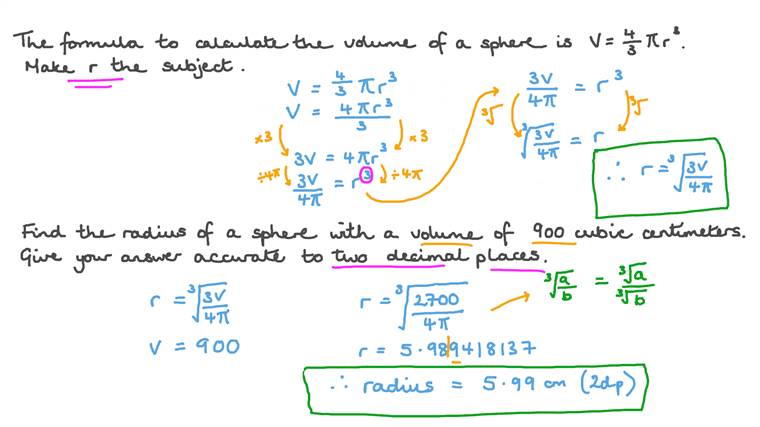 The formula to calculate the volume of a sphere is V = 4/3 πr³.
Make r the subject.
V = 4/3 πr³
V = 4πr³/3
×3 ×3
3V = 4πr³
÷4π ÷4π
3V/4π = r³
3V/4π = r³
∛ ∛
∛(3V/4π) = r
∴ r = ∛(3V/4π)
Find the radius of a sphere with a volume of 900 cubic centimeters.
Give your answer accurate to two decimal places.
r = ∛(3V/4π)
V = 900
r = ∛(2700/4π)
∛(a/b) = ∛a/∛b
r = 5.989418137
∴ radius = 5.99 cm (2dp)